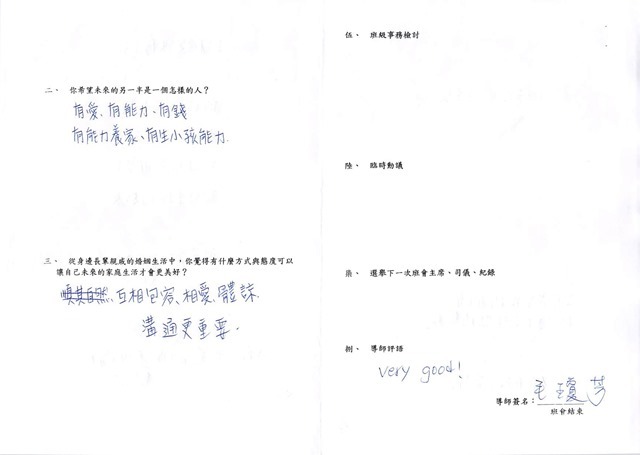 二、 你希望未來的另一半是一個怎樣的人？
有愛、有能力、有錢
有能力養家、有生小孩能力.
三、 從身邊長輩親戚的婚姻生活中，你覺得有什麼方式與態度可以
讓自己未來的家庭生活才會更美好？
順其自然, 互相包容、相愛、體諒.
溝通更重要.
伍、 班級事務檢討
陸、 臨時動議
柒、 選舉下一次班會主席、司儀、紀錄
捌、 導師評語
very good!
導師簽名：毛瓊芳
班會結束